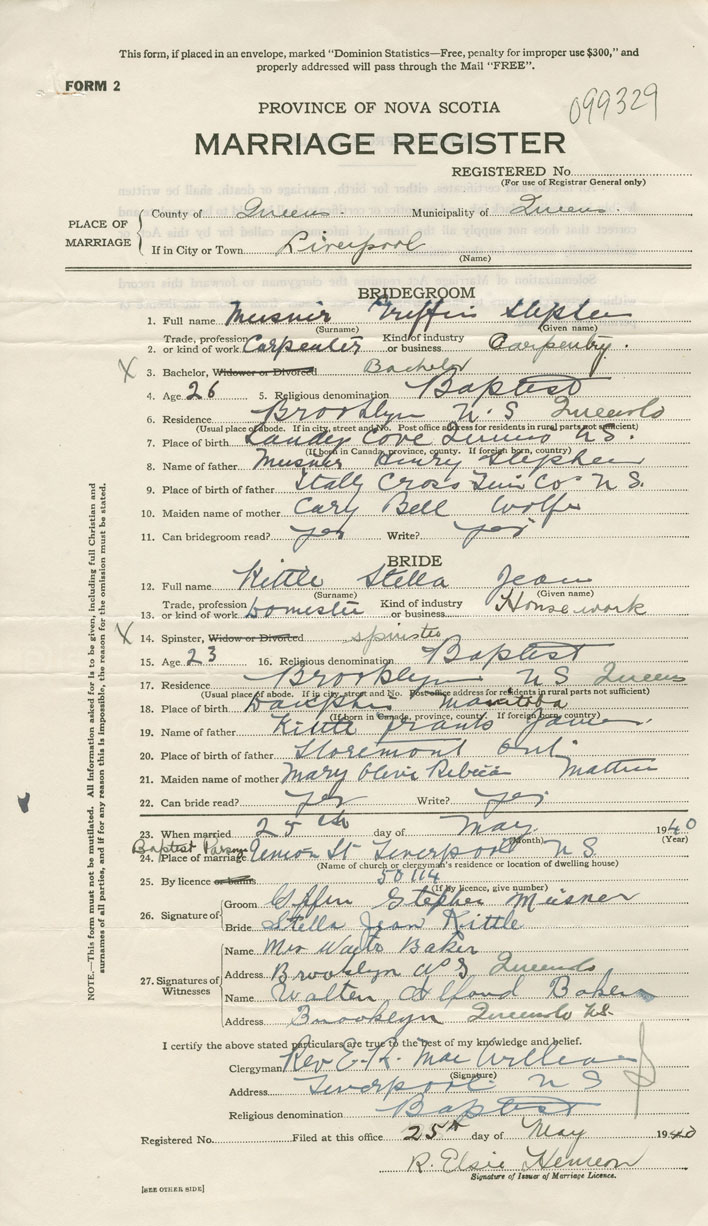 This form, if placed in an envelope, marked "Dominion Statistics—Free, penalty for improper use $300," and
properly addressed will pass through the Mail "FREE".
FORM 2
099329
PROVINCE OF NOVA SCOTIA
MARRIAGE REGISTER
REGISTERED No.
(For use of Registrar General only)
PLACE OF MARRIAGE
County of Queens. Municipality of Queens.
If in City or Town Liverpool
(Name)
BRIDEGROOM
1. Full name Meisner Griffin Stephen
(Surname) (Given name)
2. Trade, profession or kind of work Carpenter Kind of industry or business Carpentry.
X 3. Bachelor, Widower or Divorced Bachelor
4. Age 26 5. Religious denomination Baptist
6. Residence Brooklyn N.S Queens Co
(Usual place of abode. If in city, street and No. Post office address for residents in rural parts not sufficient)
7. Place of birth Sandy Cove Queens N.S.
(If born in Canada, province, county. If foreign born, country)
8. Name of father Meisner Henry Stephen
9. Place of birth of father Italy Cross Lun Co. N.S.
10. Maiden name of mother Cary Bell Wolfe
11. Can bridegroom read? yes Write? yes
BRIDE
12. Full name Kittle Stella Jean
(Surname) (Given name)
13. Trade, profession or kind of work Domestic Kind of industry or business Housework
X 14. Spinster, Widow or Divorced spinster
15. Age 23 16. Religious denomination Baptist
17. Residence Brooklyn N S Queens
(Usual place of abode. If in city, street and No. Post office address for residents in rural parts not sufficient)
18. Place of birth Dauphin Manitoba
(If born in Canada, province, county. If foreign born, country)
19. Name of father Kittle Frank James.
20. Place of birth of father Storemont Ont.
21. Maiden name of mother Mary Olive Rebecca
22. Can bride read? yes Write? yes
23. When married 25th day of May. 1940
(Month) (Year)
24. Place of marriage Baptist Parson. Union St Liverpool N S
(Name of church or clergyman's residence or location of dwelling house)
25. By licence or banns 50114
(If By licence, give number)
26. Signature of
Groom Griffin Stephen Meisner
Bride Stella Jean Kittle
27. Signatures of Witnesses
Name Mrs Walto Baker
Address Brooklyn N S Queens Co
Name Walter Alford Baker
Address Brooklyn Queens Co N.S.
I certify the above stated particulars are true to the best of my knowledge and belief.
Clergyman Rev E. K. MacWilliam
(Signature)
Address Liverpool N S
Religious denomination Baptist
Registered No. Filed at this office 25th day of May 1940
R. Elsie Hemeon
Signature of Issuer of Marriage Licence.
[SEE OTHER SIDE]
NOTE.—This form must not be mutilated. All information asked for is to be given, including full Christian and
surnames of all parties, and if for any reason this is impossible, the reason for the omission must be stated.